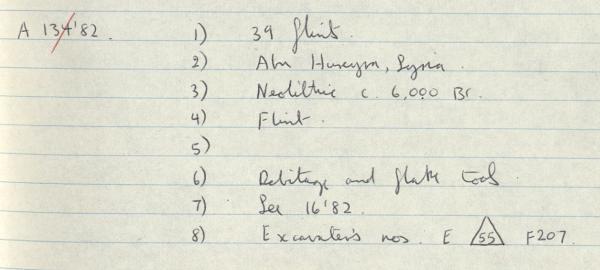 A 134'82. 1) 39 flint.
2) Abu Hureyra, Syria.
3) Neolithic c. 6,000 BC.
4) Flint.
5)
6) Debitage and flake tools
7) See 16'82.
8) Excavator's nos. E 55 F207.